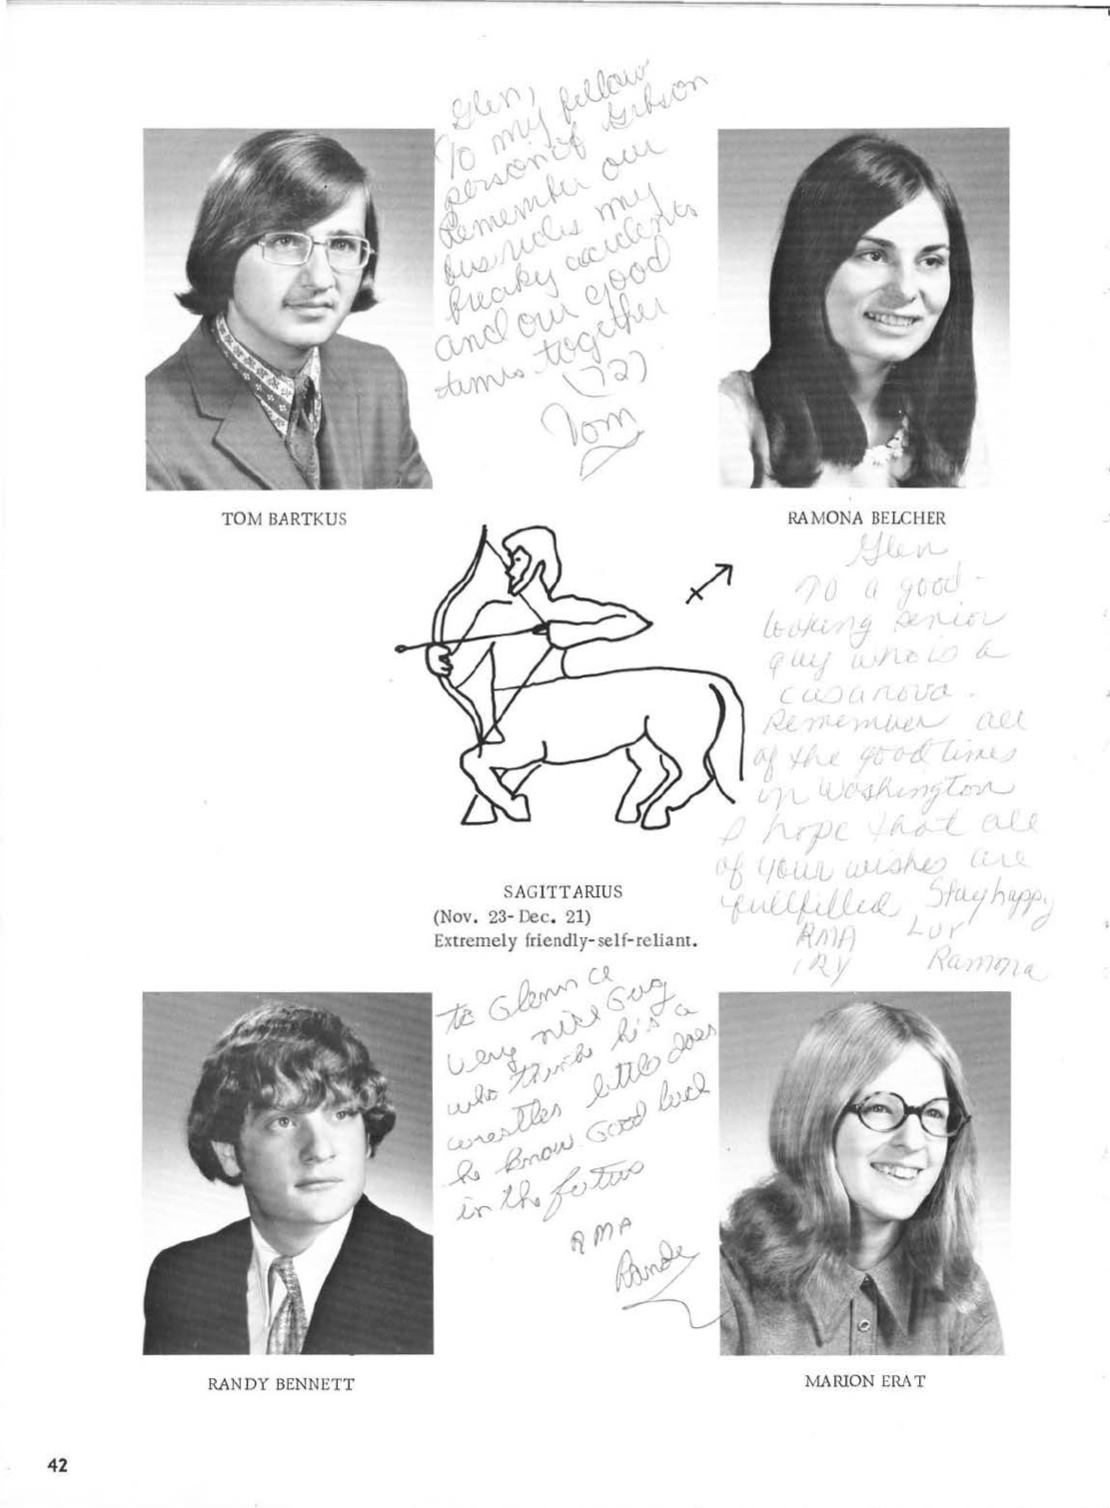 Glen,
To my fellow
person of Gibson
Remember our
bus rides my
freaky accidents
and our good
times together
(72)
Tom
TOM BARTKUS
RAMONA BELCHER
Glen
To a good-
looking senior
guy who is a
casanova.
Remember all
of the good times
in Washington
I hope that all
of your wishes are
fullfilled Stay happy
RMA Luv
Ramona
SAGITTARIUS
(Nov. 23-Dec. 21)
Extremely friendly-self-reliant.
To Glenn a
very nice Guy
who think he's a
wrestler little does
he know. Good luck
in the future
RMA
Randy
RANDY BENNETT
MARION ERAT
42